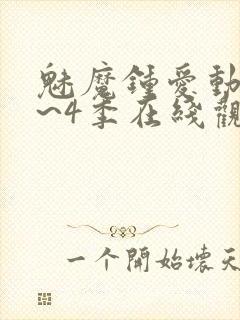 魅魔鍾愛動
~4季在綫觀
一个開始壞天